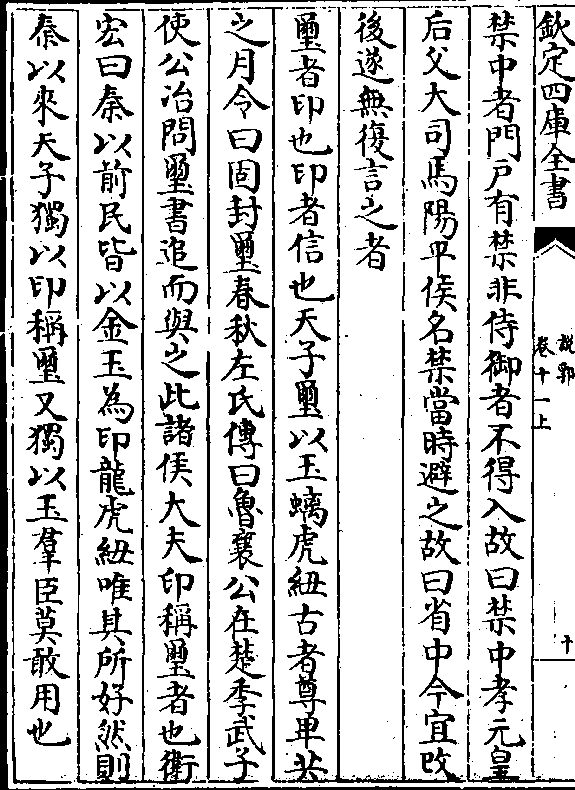 欽定四庫全書
說郛
卷十一上
十
禁中者門戶有禁非侍御者不得入故曰禁中孝元皇
后父大司馬陽平侯名禁當時避之故曰省中今宜改
後遂無復言之者
璽者印也印者信也天子璽以玉螭虎紐古者尊卑共
之月令曰固封璽春秋左氏傳曰魯襄公在楚季武子
使公冶問璽書追而與之此諸侯大夫印稱璽者也衛
宏曰秦以前民皆以金玉為印龍虎紐唯其所好然則
秦以來天子獨以印稱璽又獨以玉羣臣莫敢用也